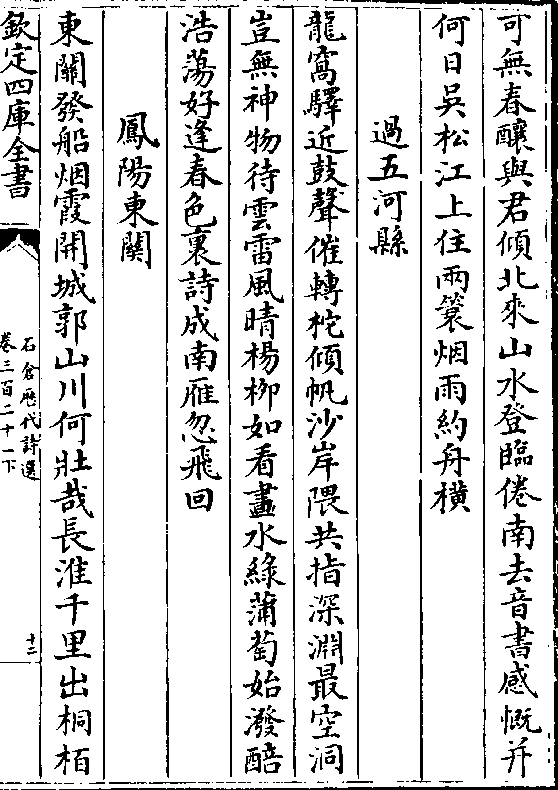 可無春釀與君傾北來山水登臨倦南去音書感慨并
何日吳松江上住兩簑烟雨約舟橫
過五河縣
龍窩驛近鼓聲催轉柁傾帆沙岸隈共指深淵最空洞
豈無神物待雲雷風晴楊柳如看畫水綠蒲萄始潑醅
浩蕩好逢春色裏詩成南雁忽飛回
鳳陽東關
東關發船烟霞開城郭山川何壯哉長淮千里出桐栢
欽定四庫全書
石倉歷代詩選
卷三百二十一下
十二